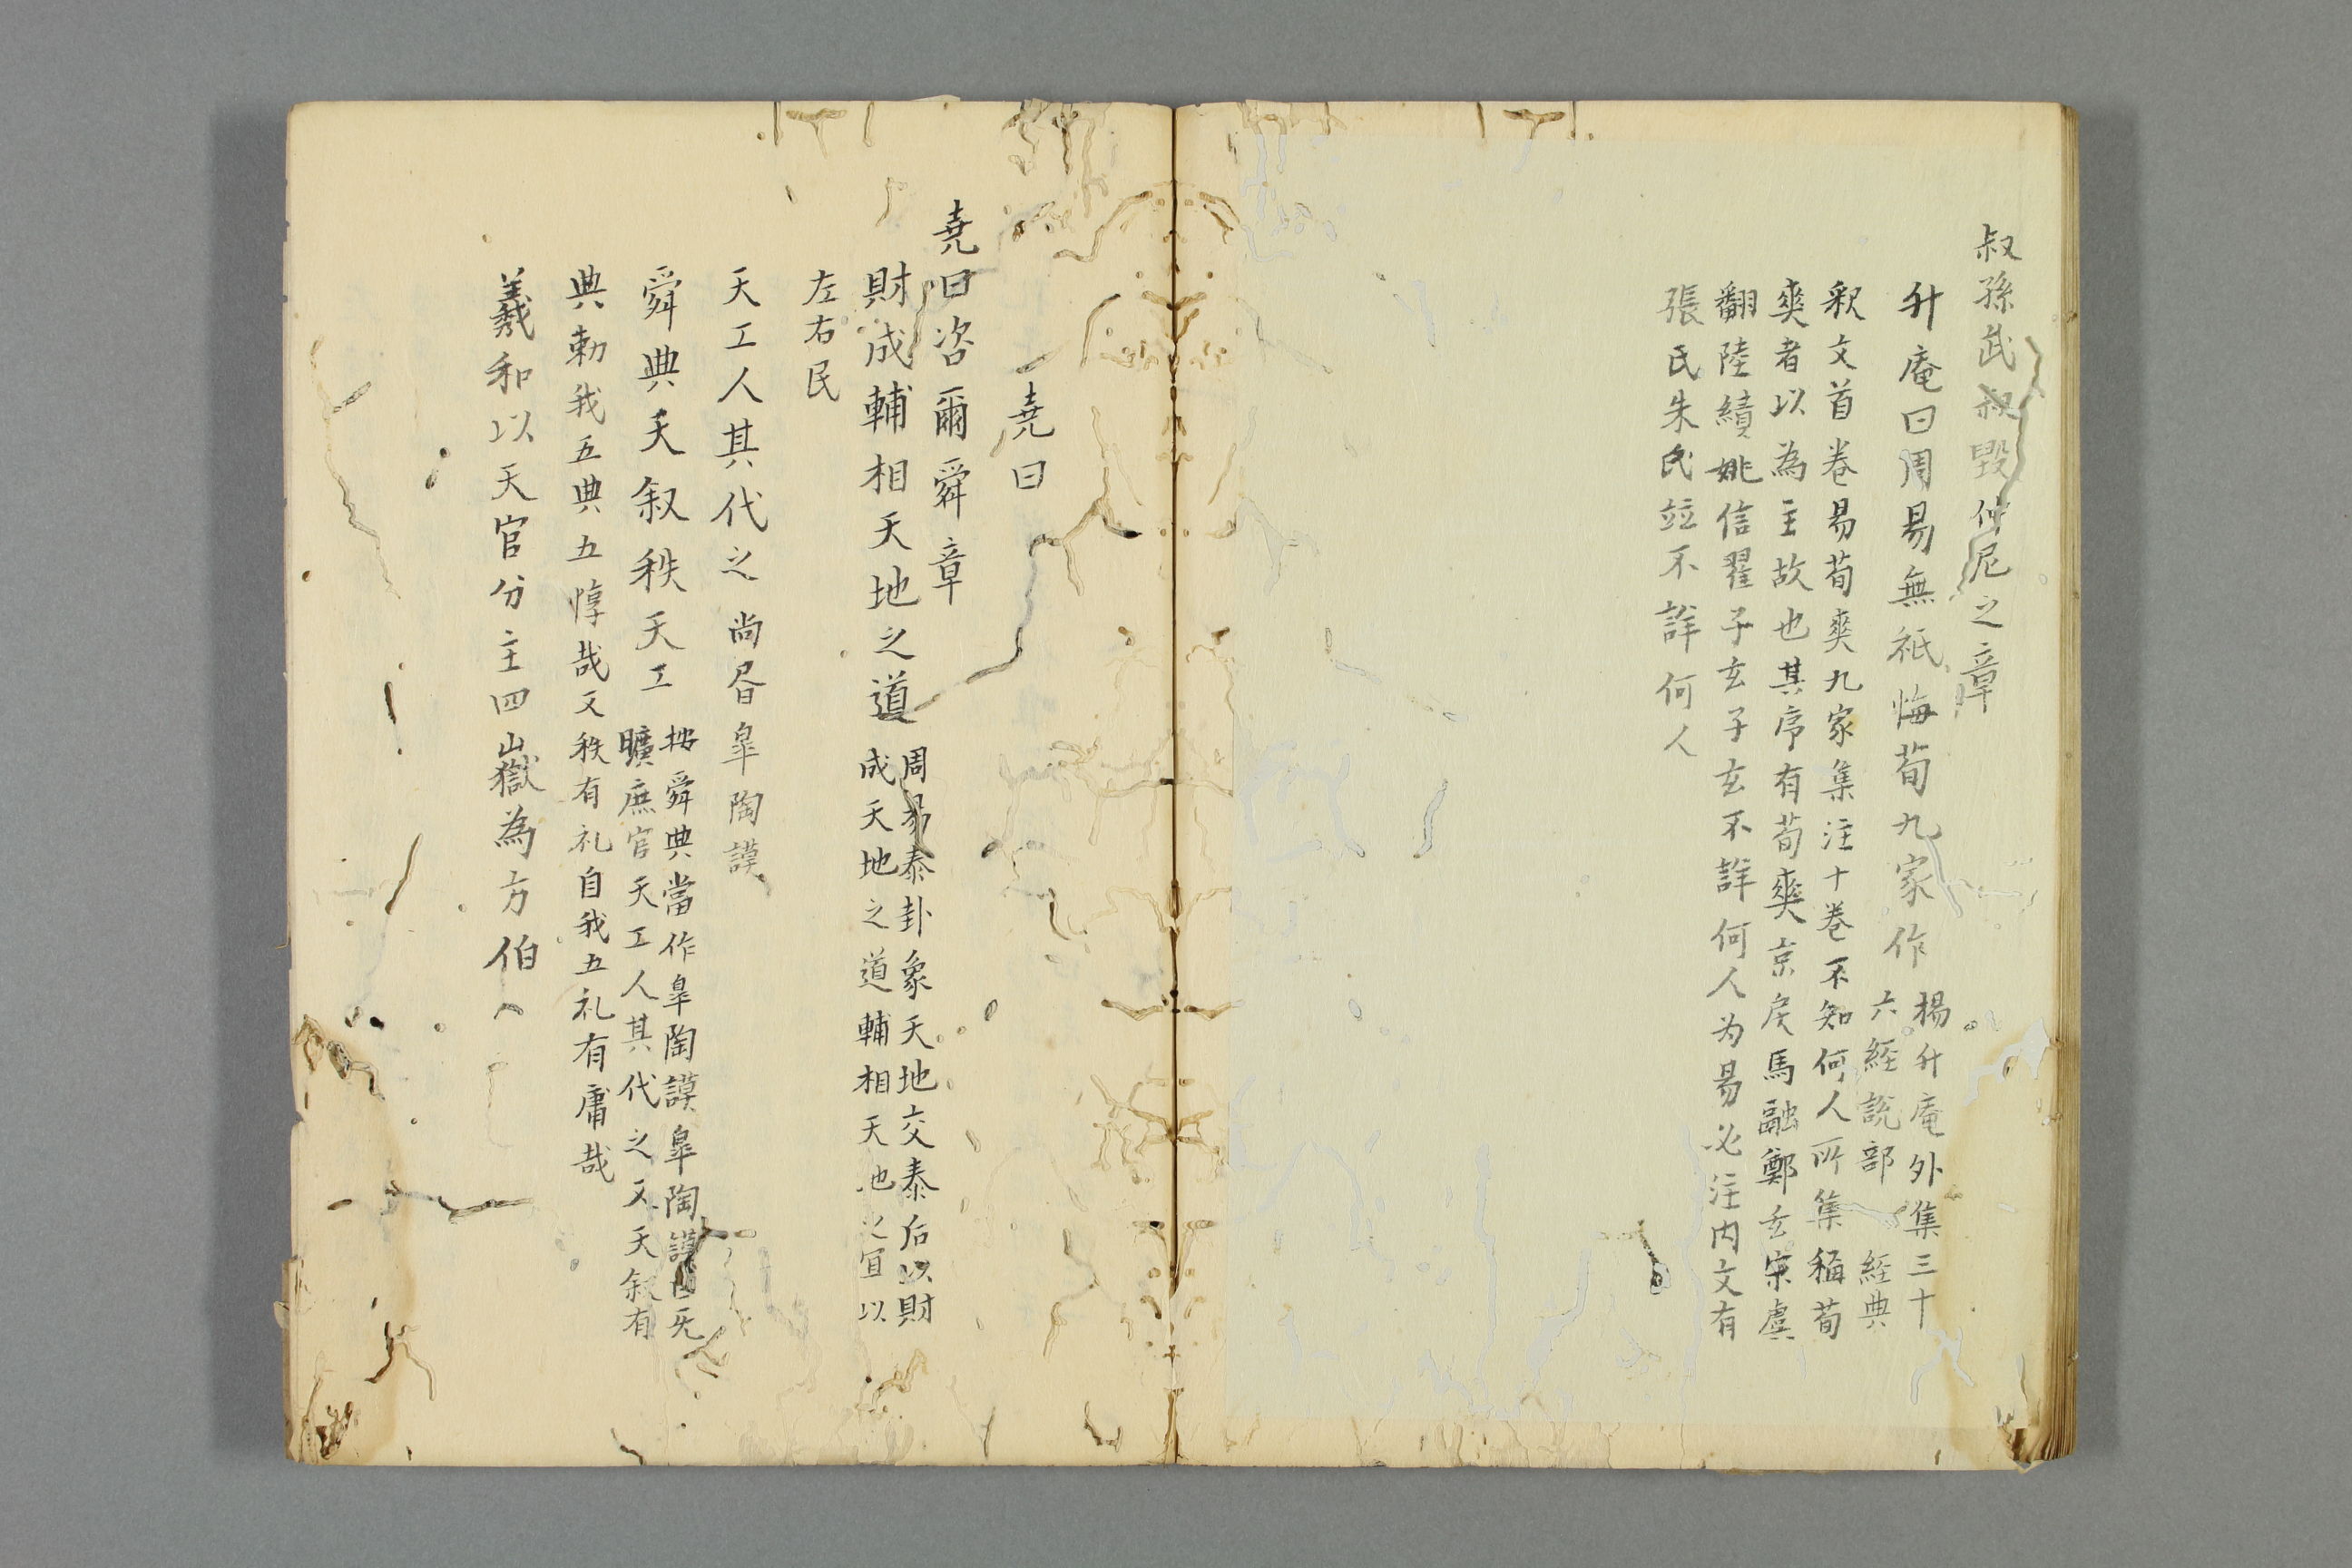 叔孫武叔毀仲尼之章
升庵曰周易無祇悔荀九家作
楊升庵外集三十
六経說部 経典
釈文首卷易荀爽九家集注十卷不知何人所集稱荀
爽者以為主故也其序有荀爽京房馬融鄭玄宋虞
翻陸績姚信翟子玄子玄不詳何人为易必注内文有
張氏朱氏竝不詳何人
堯曰
堯曰咨爾舜章
財成輔相天地之道
周易泰卦象天地交泰后以財
成天地之道輔相天地之宜以
左右民
天工人其代之 尚昏皐陶謨
舜典天叙秩天工
按舜典當作皐陶謨皐陶謨曰旡
曠庶官天工人其代之又天叙有
典勅我五典五惇哉又秩有礼自我五礼有庸哉
羲和以天官分主四嶽為方伯